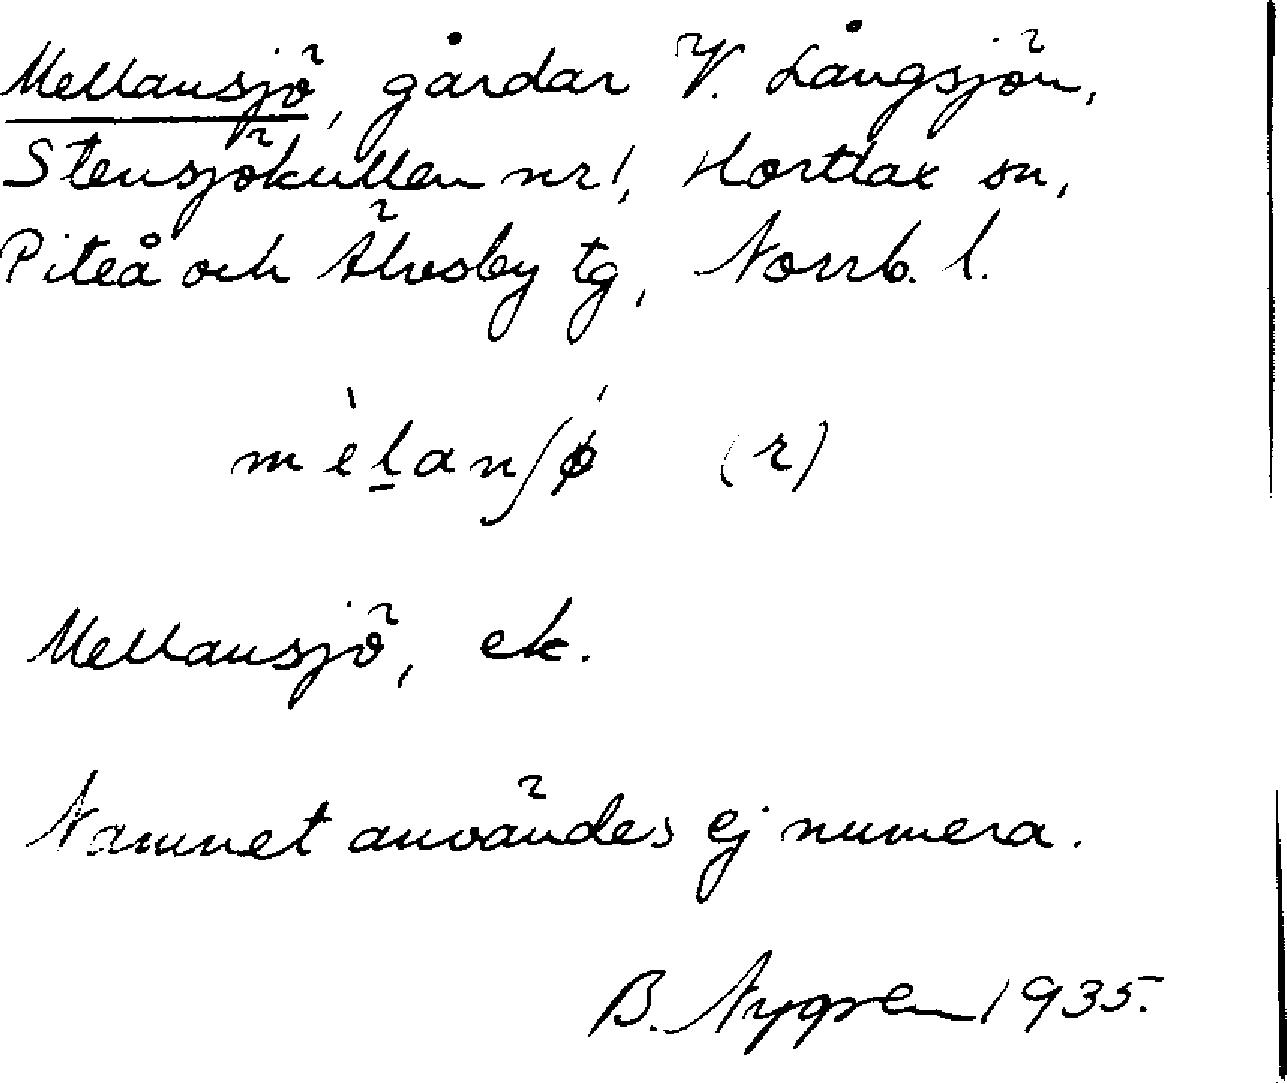 Mellansjö, gårdar V. Långsjön,
Stensjökullen nr 1, Hortlax sn,
Piteå och Älvsby tg, Norrb. l.
mèḻanʃǿ (r)
Mellansjö, ek.
Namnet användes ej numera.
B. Nygren 1935.